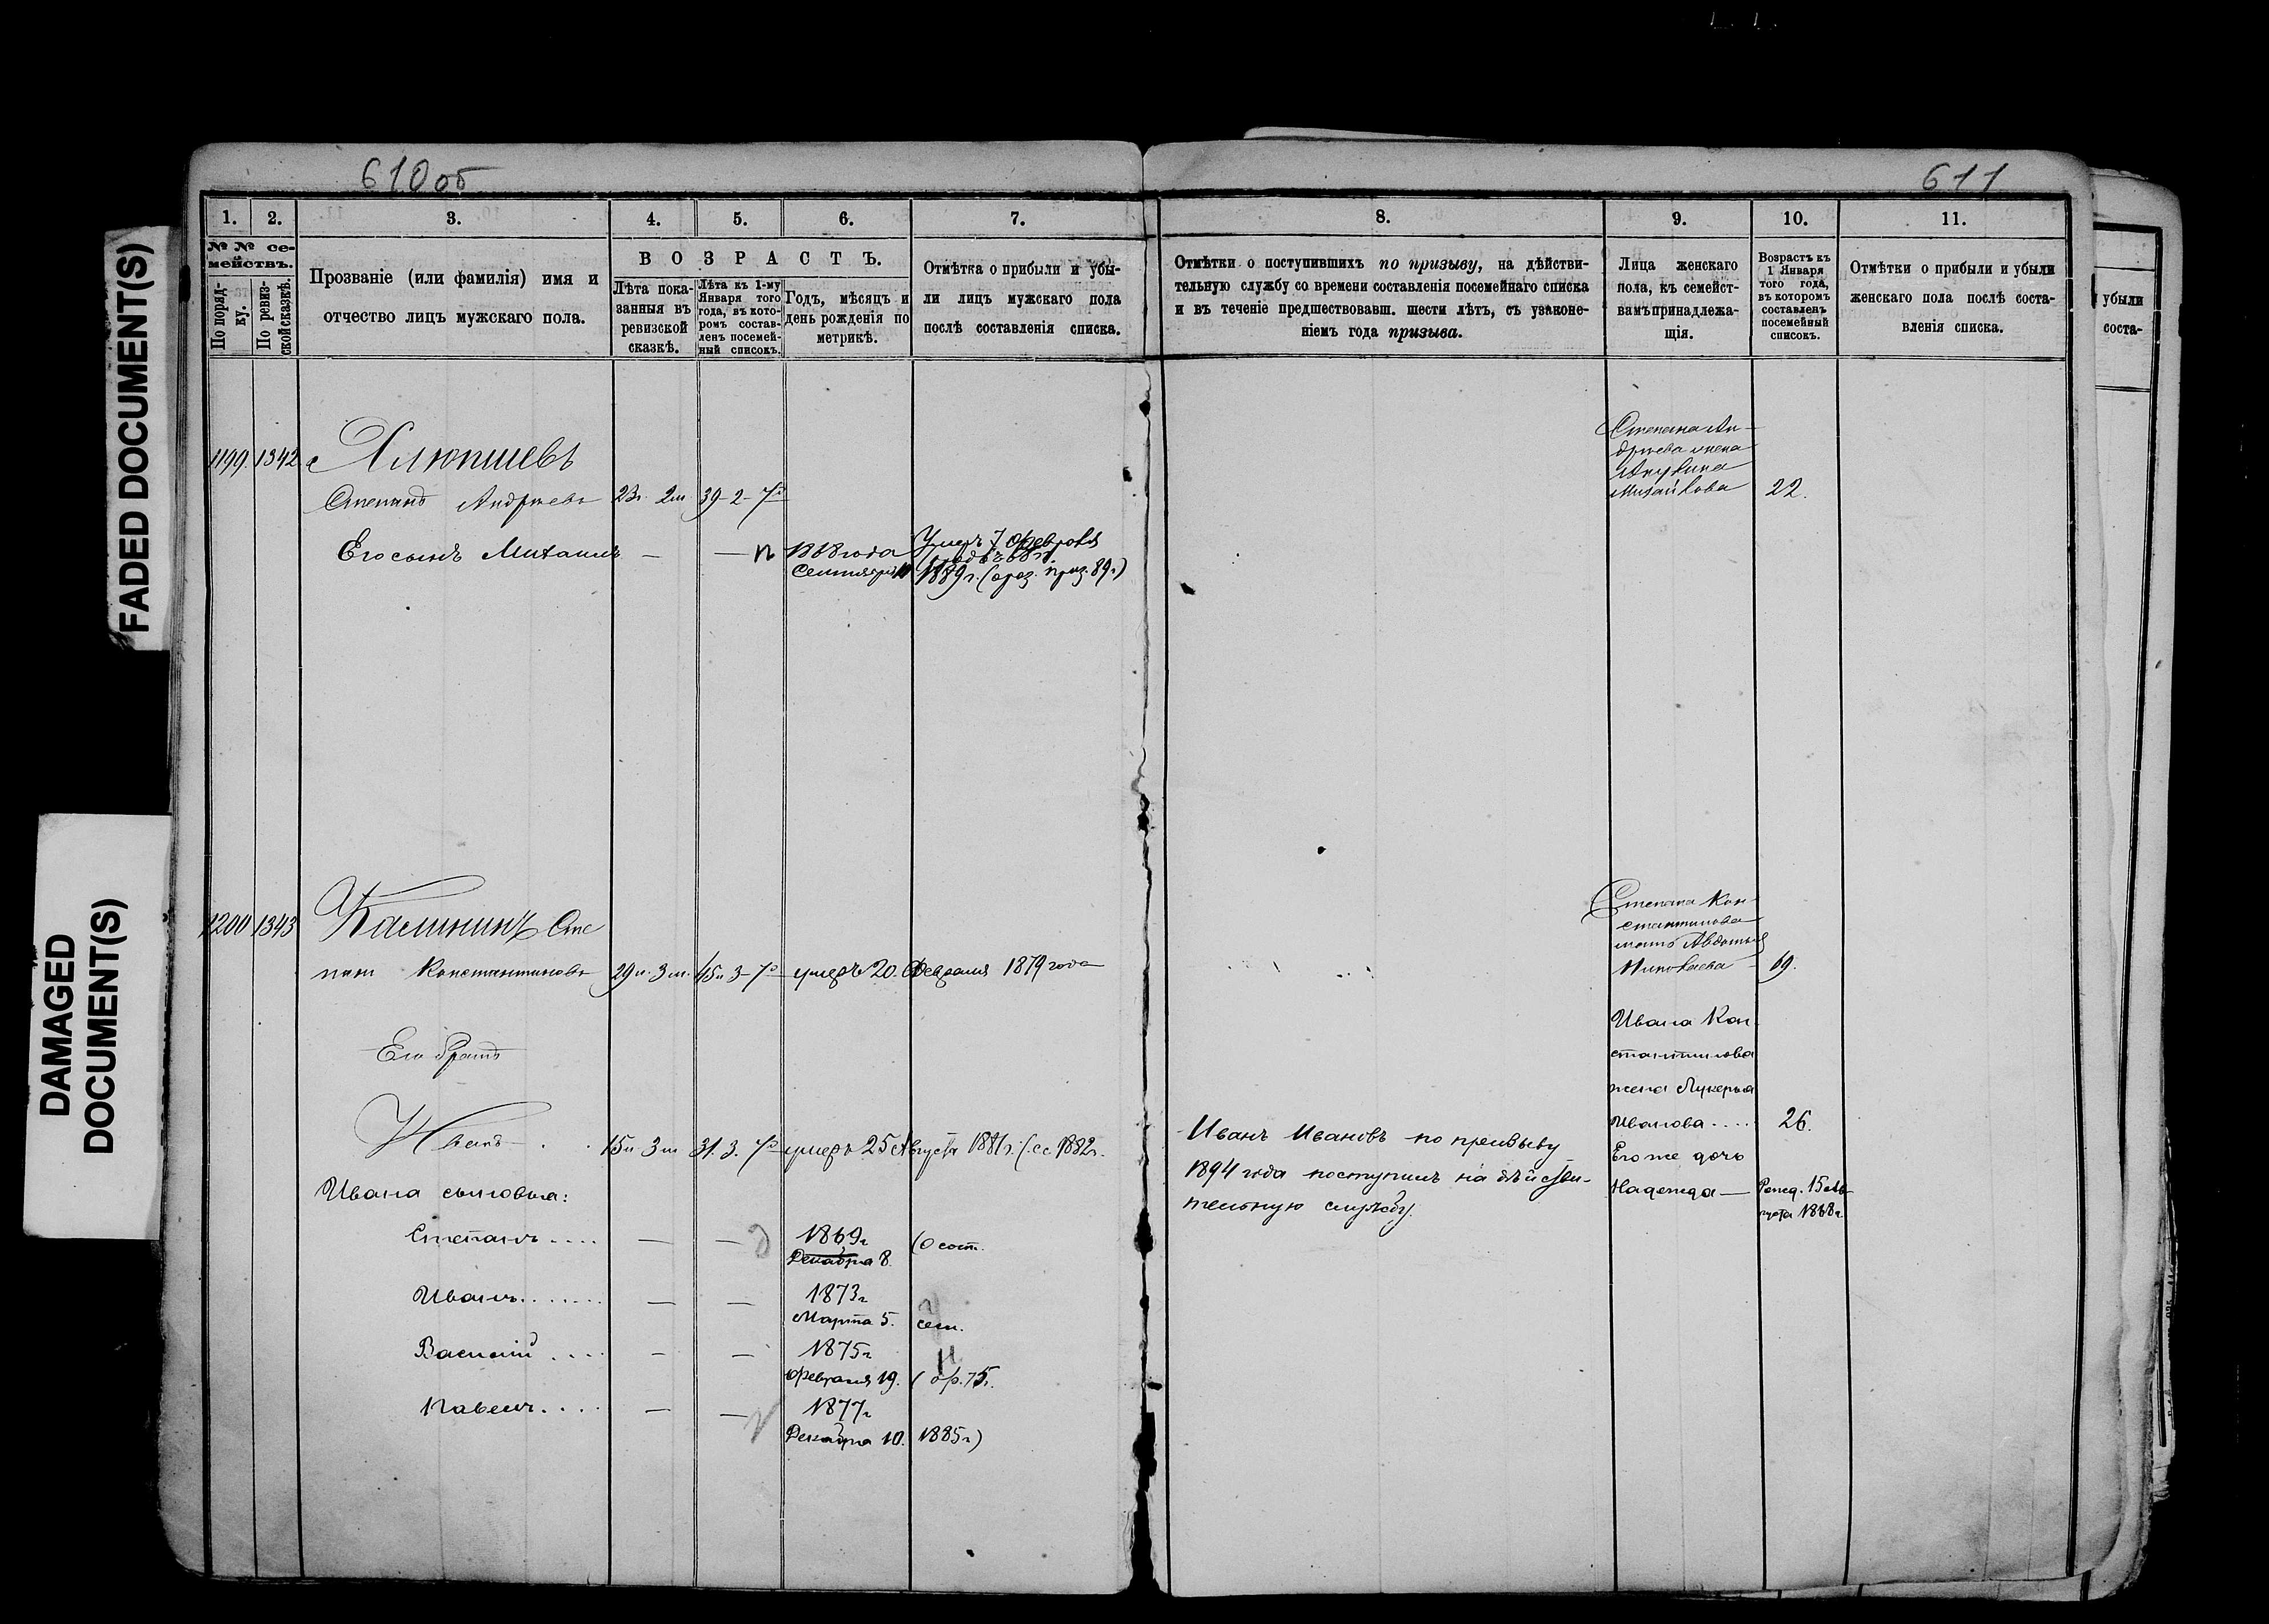 FADED DOCUMENT(S)
DAMAGED
DOCUMENT(S)
610об
1.
2.
3.
4.
5.
6.
7.
№ № се-
мействъ.
По поряд-
ку.
По ревиз-
ской сказкѣ.
Прозваніе (или фамилія) имя и
отчество лицъ мужскаго пола.
ВОЗРАСТЪ.
Лѣта пока-
занныя въ
ревизской
сказкѣ.
Лѣта къ 1-му
Января того
года, въ кото-
ромъ состав-
ленъ посемей-
ный списокъ.
Годъ, мѣсяцъ и
день рожденія по
метрикѣ.
Отмѣтка о прибыли и убы-
ли лицъ мужскаго пола
послѣ составленія списка.
1199. 1342
Степанъ Андреевъ 23 2м. 39-2-
Его сынъ Михаилъ — — 1868 года
Сентября
Умеръ 7 Февраля
1889 г. (приз. 89 г.)
1200 1343 Калининъ Сте
панъ Константиновъ 29 п. 3 м. 45 п 3- умеръ 20. Февраля 1879 года
Его братъ
Иванъ 15 п 3 м 31. 3. умеръ 25 Августа 1881 г. (сс. 1882 г.
Ивана сыновья:
Степанъ.... — — 1869 г
Декабря 8.
Иванъ....... — — 1873 г
Марта 5.
Василій.... — — 1875 г
Февраля 19.
Павелъ.... — — 1877 г
Декабря 10. 1885 г)
611
8.
9.
10.
11.
Отмѣтки о поступившихъ по призыву, на дѣйстви-
тельную службу со времени составленія посемейнаго списка
и въ теченіе предшествовавш. шести лѣтъ, съ узаконе-
ніемъ года призыва.
Лица женскаго
пола, къ семейст-
вамъ принадлежа-
щія.
Возрастъ къ
1 Января
того года,
въ которомъ
составленъ
посемейный
списокъ.
Отмѣтки о прибыли и убыли
женскаго пола послѣ соста-
вленія списка.
Степана Ан-
дреева жена
Акулина
Михайлова 22.
Степана Кон-
стантинова
мать Авдотья
Николаева 69.
Ивана Кон-
стантинова
жена Лукерья
Иванова.... 26.
Его же дочь
Надежда — Рожд. 15 Ав-
густа 1868 г.
Иванъ Ивановъ по призыву
1894 года поступилъ на дѣйстви-
тельную службу.
убыли
соста-